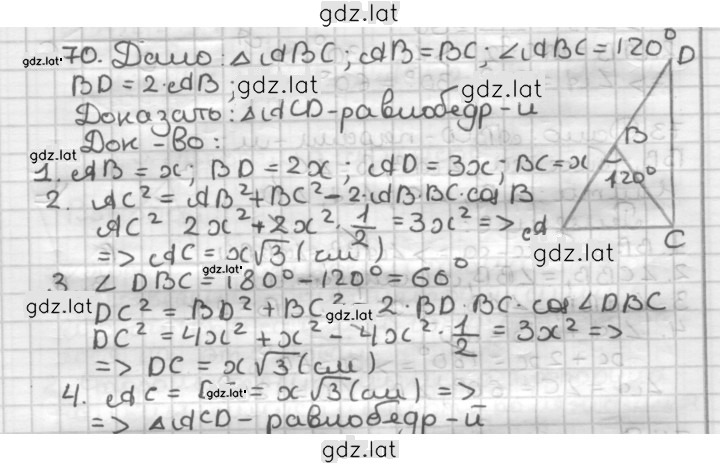 gdz.lat
70. Дано: △ABC; AB=BC; ∠ABC=120°
gdz.lat
BD=2·AB;
gdz.lat
Доказать: △ACD-равнобедр-й
Док-во:
gdz.lat
1. AB=x; BD=2x; AD=3x; BC=x
2. AC²=AB²+BC²-2·AB·BC·cos B
AC² 2x²+2x²·1/2=3x²=>
=> AC=x√3(см)
gdz.lat
3. ∠DBC=180°-120°=60°
gdz.lat
gdz.lat
DC²=BD²+BC²-2·BD·BC·cos∠DBC
gdz.lat
DC²=4x²+x²-4x²·1/2=3x²=>
=> DC=x√3(см)
4. AC= =x√3(см)=>
gdz.lat
=> △ACD-равнобедр-й
gdz.lat
D
B
120°
A
C